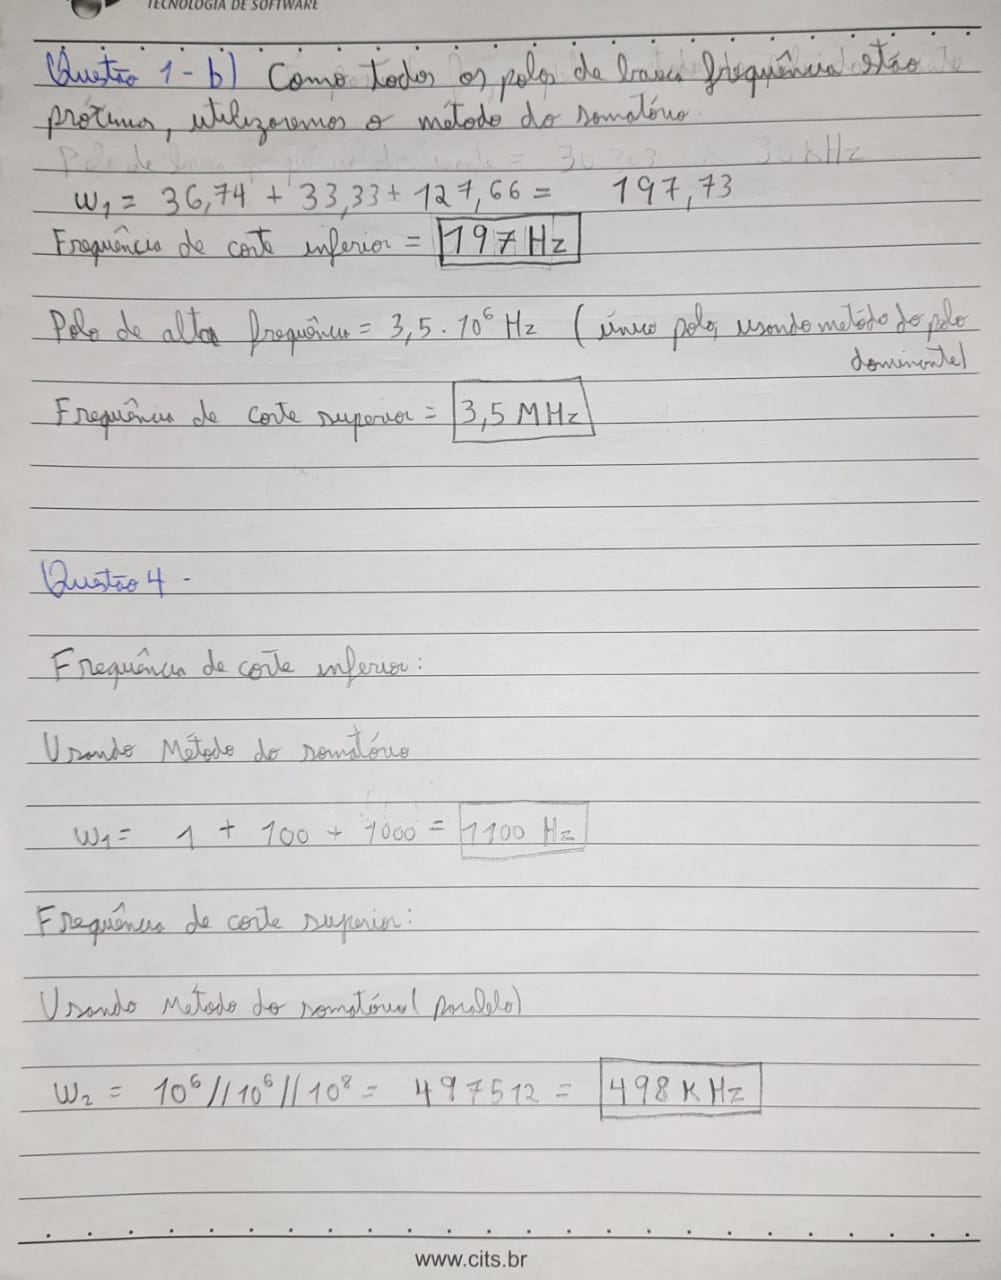 TECNOLOGIA DE SOFTWARE
Questão 1 - b) Como todos os polos de baixa frequência estão
próximos, utilizaremos o método do somatório.
Polo de baixa frequência dominante = 30303 ≈ 30 KHz
W1 = 36,74 + 33,33 + 127,66 = 197,73
Frequência de corte inferior = 197 Hz
Polo de alta frequência = 3,5 . 10⁶ Hz (único polo, usando metódo do polo
dominante)
Frequência de corte superior = 3,5 MHz
Questão 4 -
Frequência de corte inferior:
Usando Método do somatório
W1 = 1 + 100 + 1000 = 1100 Hz
Frequência de corte superior:
Usando Método do somatório (paralelo)
W2 = 10⁶ // 10⁶ // 10⁸ = 497512 = 498 K Hz
www.cits.br